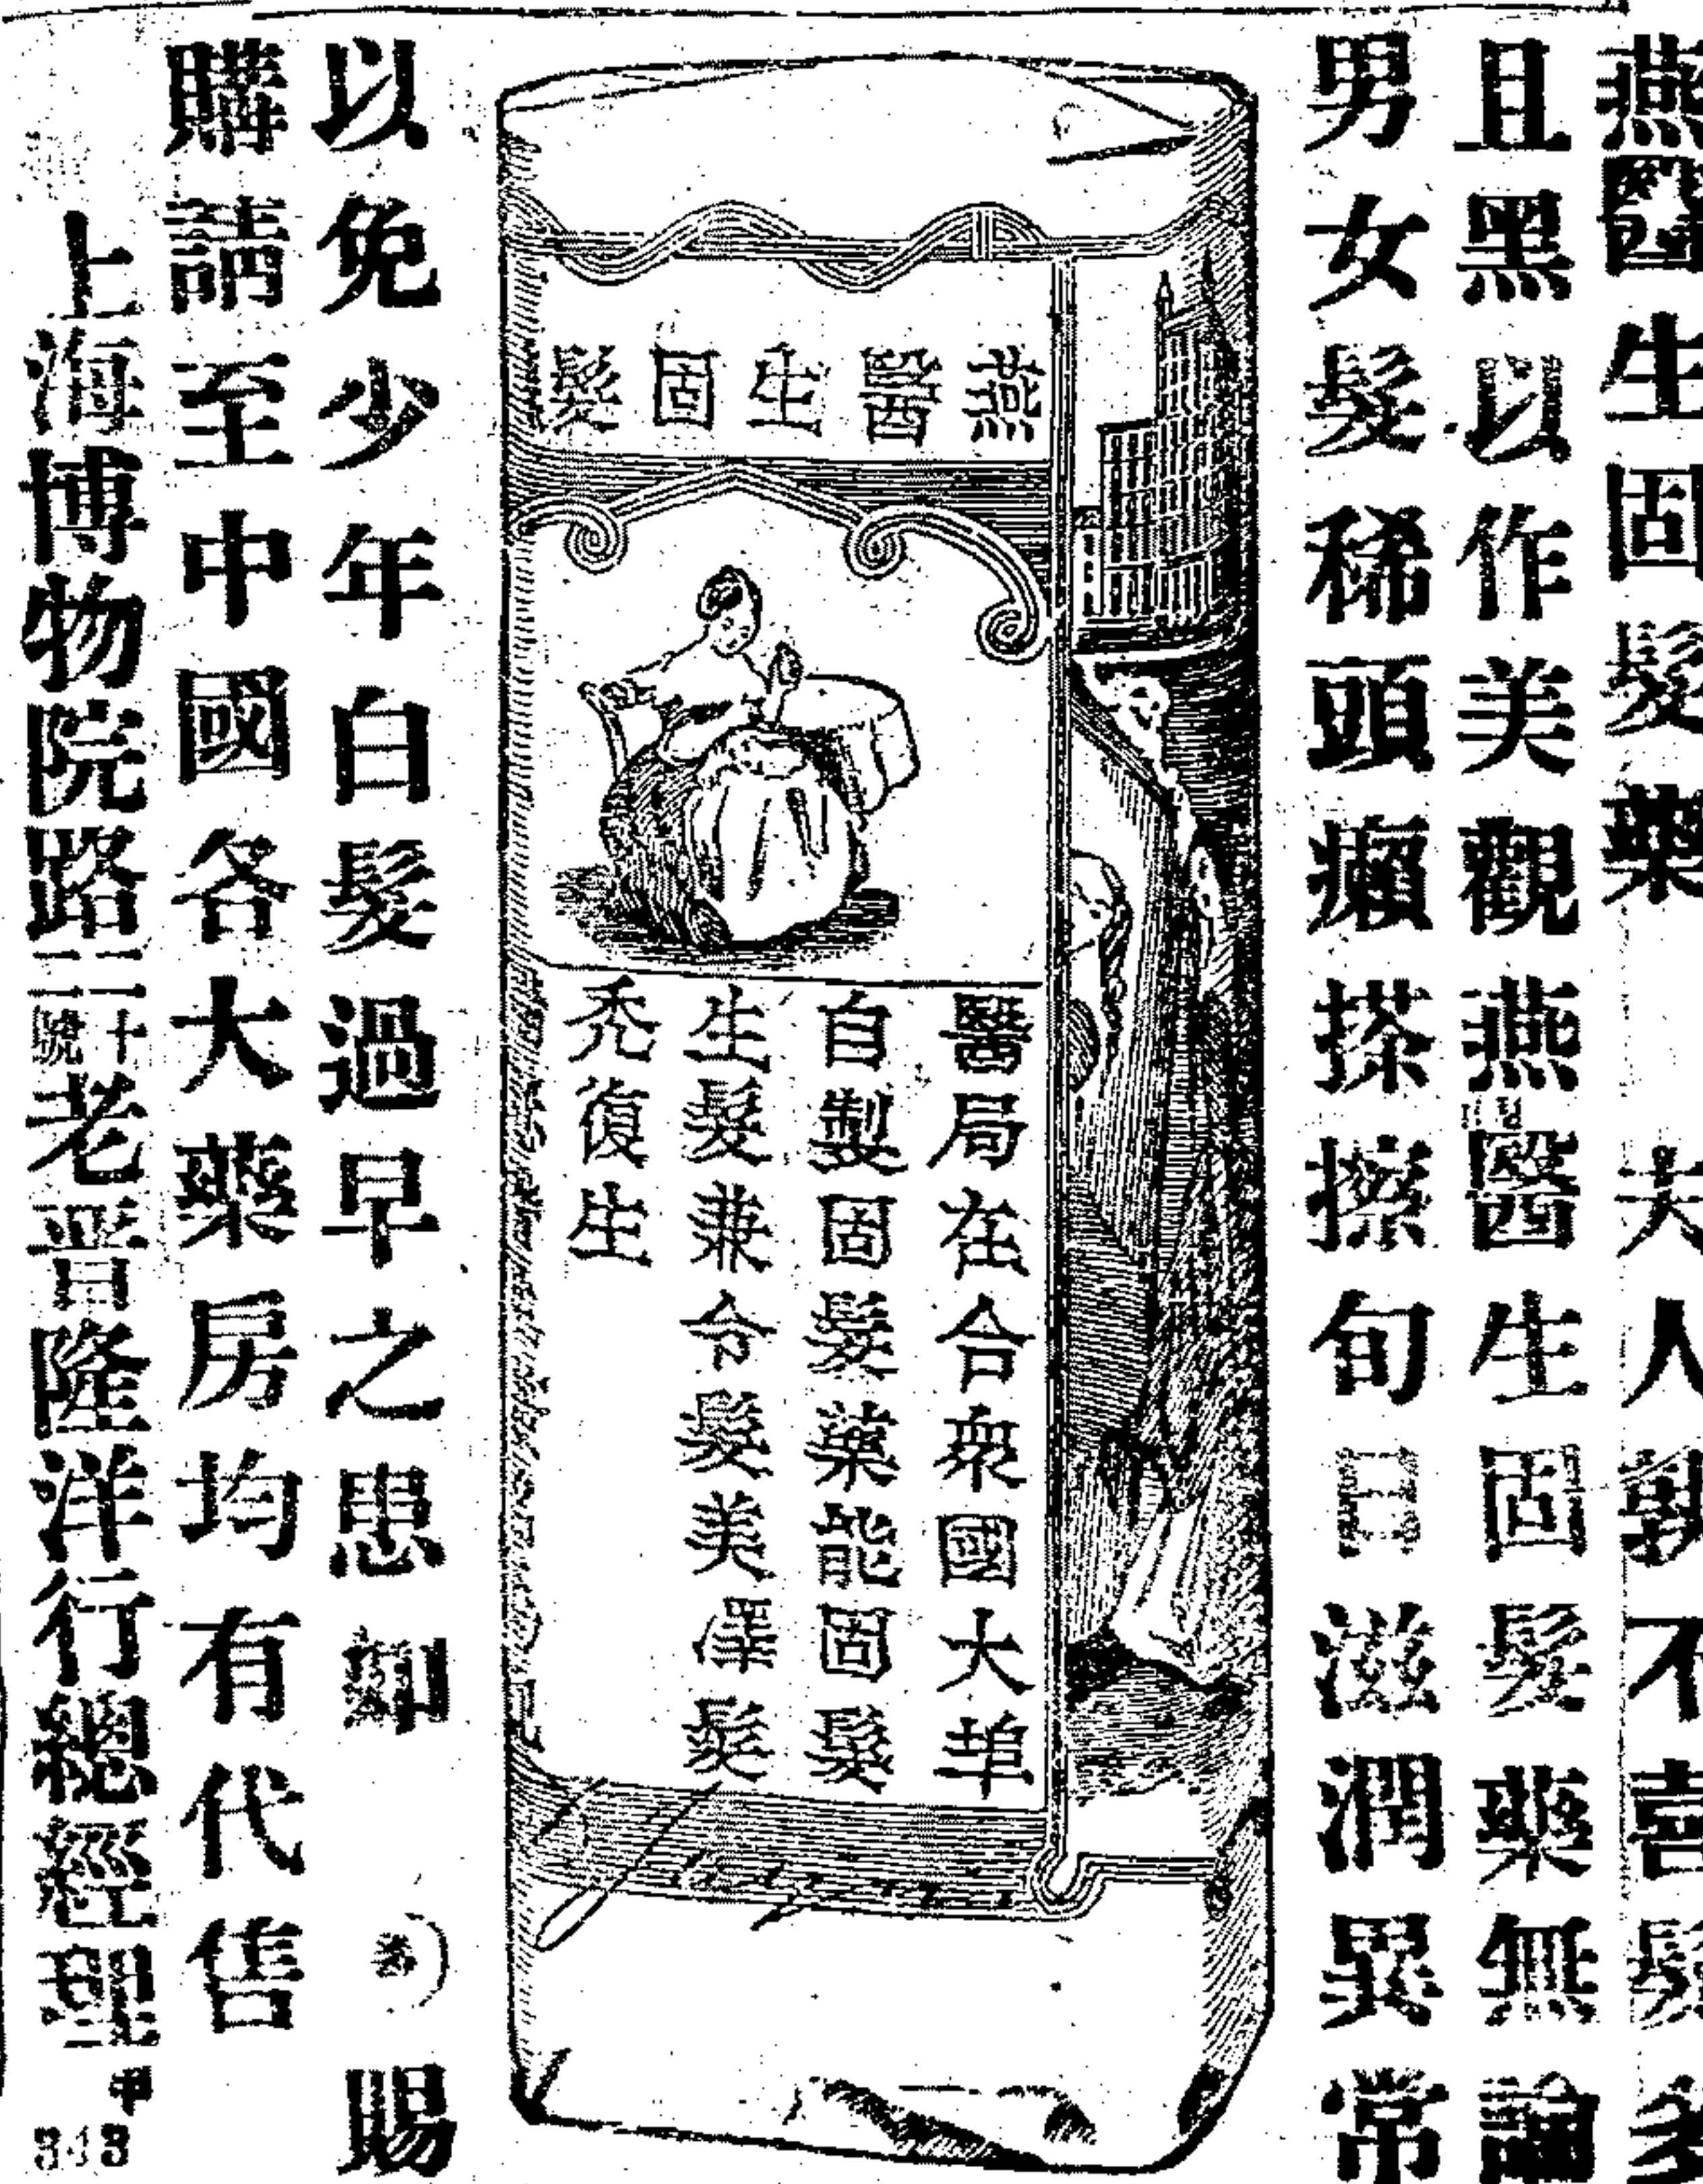 燕醫生固髮藥 夫人孰不喜鬚多
且黑以作美觀燕醫生固髮藥無論
男女髮稀頭癩搽擦旬日滋潤異常
燕醫生固髮
醫局在合衆國大埠
自製固髮藥能固髮
生髮兼令髮美澤髮
禿復生
以免少年白髮過早之患 如 賜
購請至中國各大藥房均有代售
上海博物院路二十二號老晋隆洋行總經理
申
343